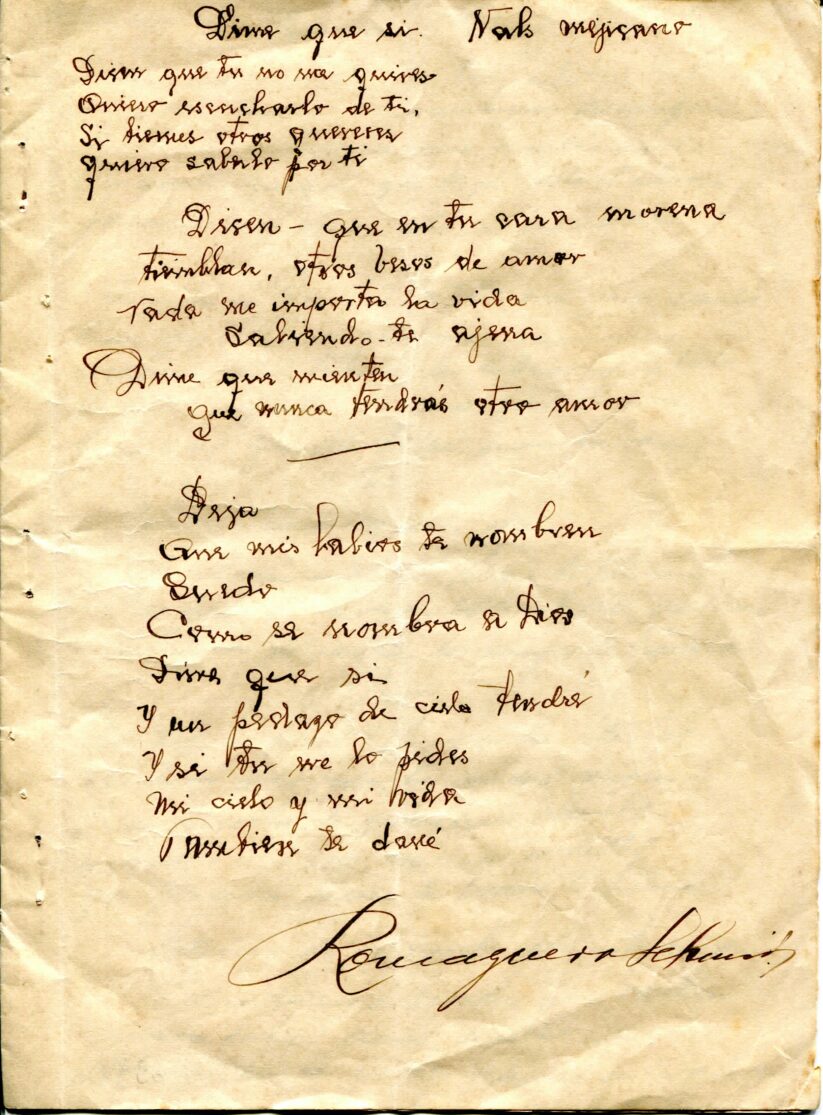 Dime que si. Vals mejicano
Disen que tu no me quires
Quiero escucharlo de ti,
Si tienes otros quereres
quiero saberlo por ti
Disen - que en tu cara morena
tiemblan, otros besos de amor
Nada me importa la vida
Sabiendo-te ajena
Dime que mienten
que nunca tendrás otro amor
Deja
Que mis labios te nombren
Quedo
Como se nombra a Dios
Dime que si
Y un pedazo de cielo tendré
Y si tu me lo pides
Mi cielo y mi vida
Tambien te daré
Romaguera